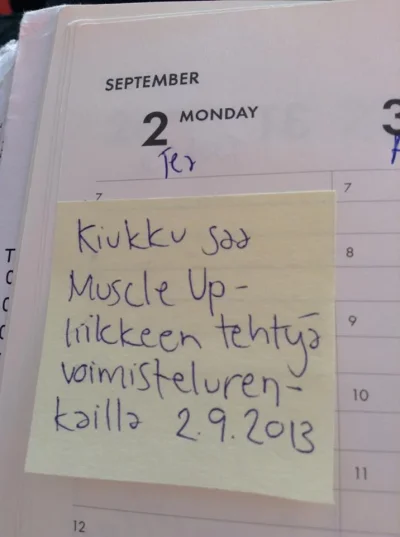 SEPTEMBER
2 MONDAY
3
Ter
7
7
Kiukku saa
Muscle Up-
liikkeen tehtyä
voimisteluren-
kailla 2.9.2013
8
9
10
11
12